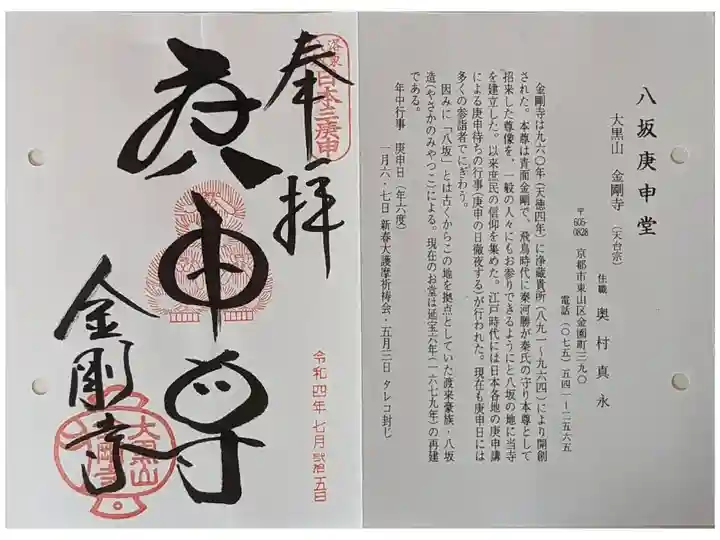 八坂庚申堂
大黒山　金剛寺　(天台宗)
住職　奥村真永
〒605-0828　京都市東山区金園町三九〇
電話（〇七五）五四一－二五六五
金剛寺は九六〇年（天徳四年）に浄蔵貴所（八九一～九六四）により開創
された。本尊は青面金剛で、飛鳥時代に秦河勝が秦氏の守り本尊として
招来した尊像を、一般の人々にもお参りできるようにと八坂の地に当寺
を建立した。以来庶民の信仰を集めた。江戸時代には日本各地の庚申講
による庚申待ちの行事（庚申の日徹夜する）が行われた。現在も庚申日には
多くの参詣者でにぎわう。
因みに「八坂」とは古くからこの地を拠点としていた渡来豪族・八坂
造（やさかのみやつこ）による。現在のお堂は延宝六年（一六七九年）の再建
である。
年中行事　庚申日（年六度）
一月六・七日 新春大護摩祈祷会・五月三日 タレコ封じ
奉拝
日本三庚申
庚申尊
金剛寺
大黒山
令和四年七月弐拾五日